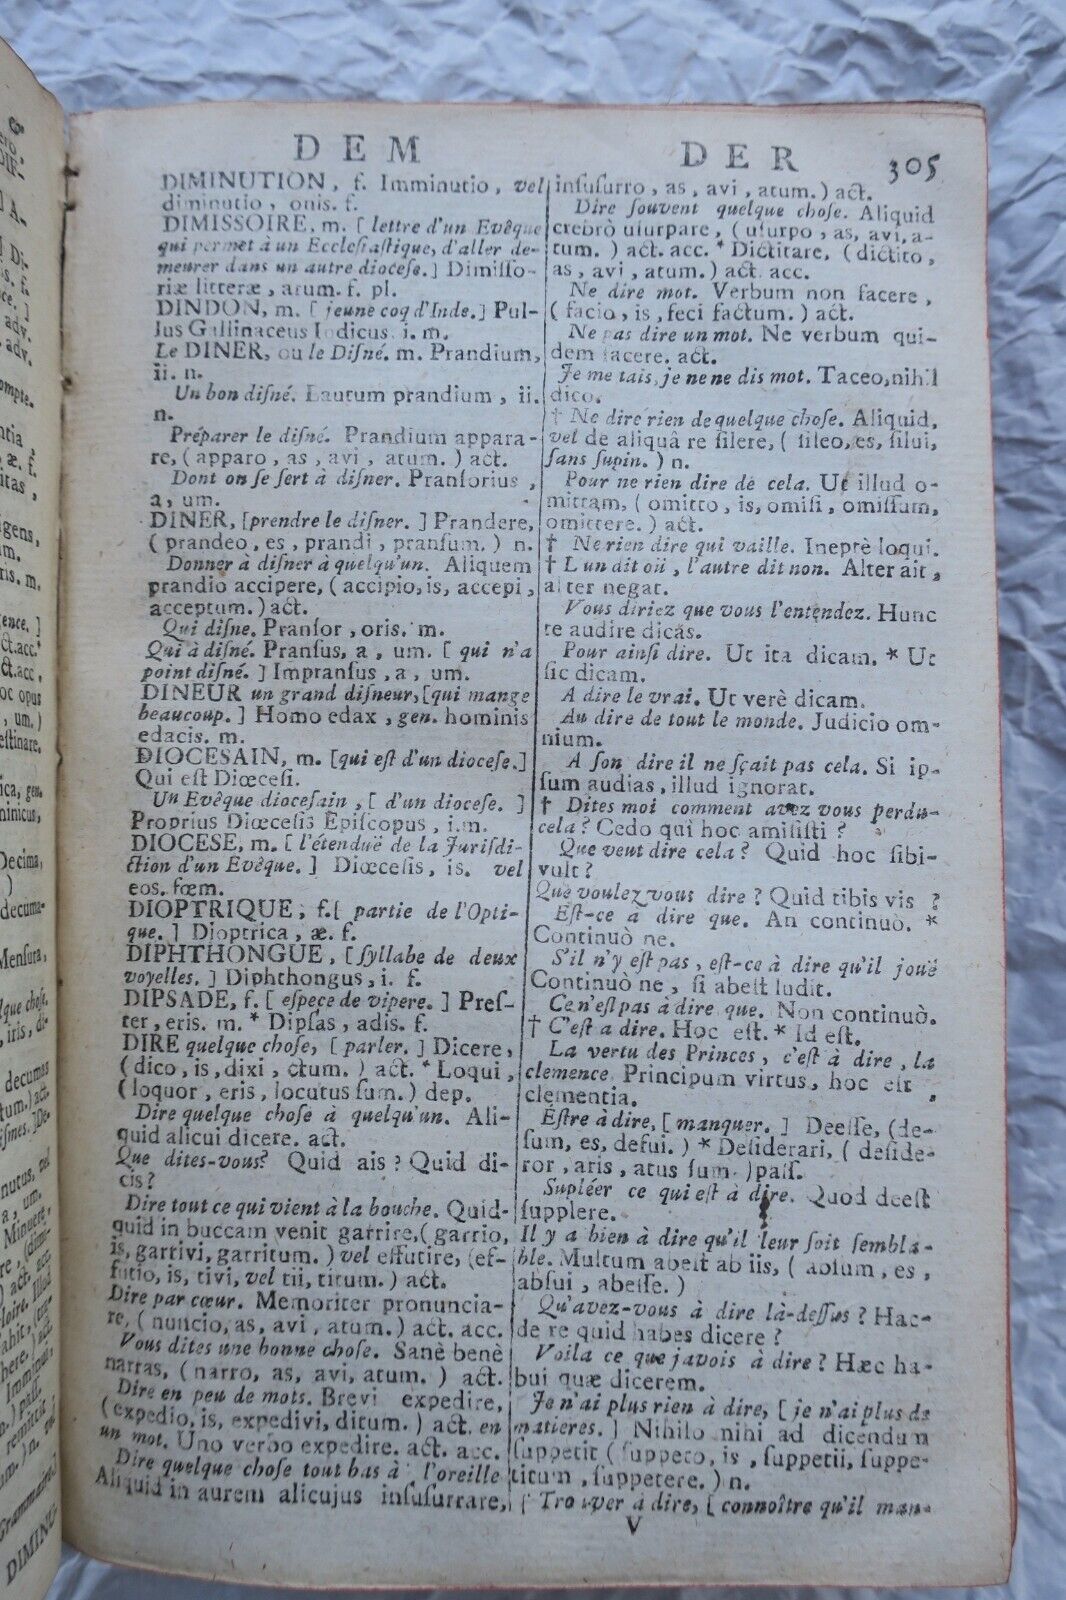 DEM DER 305
DIMINUTION, f. Imminutio, vel
diminutio, onis. f.
DIMISSOIRE, m. [ lettre d'un Evêque
qui permet à un Ecclesiastique, d'aller de-
meurer dans un autre diocese. ] Dimisso-
riæ litteræ, arum. f. pl.
DINDON, m. [ jeune coq d'Inde. ] Pul-
lus Gallinaceus Indicus. i. m.
Le DINER, ou le Disné. m. Prandium,
ii. n.
Un bon disné. Lautum prandium, ii.
n.
Préparer le disné. Prandium appara-
re, ( apparo, as, avi, atum. ) act.
Dont on se sert à disner. Pransorius,
a, um.
DINER, [prendre le disner. ] Prandere,
( prandeo, es, prandi, pransum. ) n.
Donner à disner à quelqu'un. Aliquem
prandio accipere, ( accipio, is, accepi,
acceptum. ) act.
Qui disne. Pransor, oris. m.
Qui à disné. Pransus, a, um. [ qui n'a
point disné. ] Impransus, a, um.
DINEUR un grand disneur, [qui mange
beaucoup. ] Homo edax, gen. hominis
edacis. m.
DIOCESAIN, m. [qui est d'un diocese. ]
Qui est Diœcesi.
Un Evêque diocesain, [ d'un diocese. ]
Proprius Diœcesis Episcopus, i. m.
DIOCESE, m. [ l'étenduë de la Jurisdi-
ction d'un Evêque. ] Diœcesis, is. vel
eos. fœm.
DIOPTRIQUE, f. [ partie de l'Opti-
que. ] Dioptrica, æ. f.
DIPHTHONGUE, [syllabe de deux
voyelles. ] Diphthongus, i. f.
DIPSADE, f. [ espece de vipere. ] Pres-
ter, eris. m. * Dipsas, adis. f.
DIRE quelque chose, [ parler. ] Dicere,
( dico, is, dixi, ctum. ) act. * Loqui,
( loquor, eris, locutus sum. ) dep.
Dire quelque chose à quelqu'un. Ali-
quid alicui dicere. act.
Que dites-vous? Quid ais? Quid di-
cis?
Dire tout ce qui vient à la bouche. Quid-
quid in buccam venit garrire, ( garrio,
is, garrivi, garritum. ) vel effutire, (ef-
futio, is, tivi, vel tii, titum. ) act.
Dire par cœur. Memoriter pronuncia-
re, ( nuncio, as, avi, atum. ) act. acc.
Vous dites une bonne chose. Sanè benè
narras, ( narro, as, avi, atum. ) act.
Dire en peu de mots. Brevi expedire,
( expedio, is, expedivi, ditum. ) act. en
un mot. Uno verbo expedire. act. acc.
Dire quelque chose tout bas à l'oreille
Aliquid in aurem alicujus insusurrare,
insusurro, as, avi, atum. ) act.
Dire souvent quelque chose. Aliquid
crebrò usurpare, ( usurpo, as, avi, a-
tum. ) act. acc. * Dictitare, ( dictito,
as, avi, atum. ) act. acc.
Ne dire mot. Verbum non facere,
( facio, is, feci factum. ) act.
Ne pas dire un mot. Ne verbum qui-
dem facere. act.
Je me tais, je ne ne dis mot. Taceo, nihil
dico.
† Ne dire rien de quelque chose. Aliquid,
vel de aliquâ re silere, ( sileo, es, silui,
sans supin. ) n.
Pour ne rien dire de cela. Ut illud o-
mittam, ( omitto, is, omisi, omissum,
omittere. ) act.
† Ne rien dire qui vaille. Ineptè loqui.
† L'un dit oüi, l'autre dit non. Alter ait,
alter negat.
Vous diriez que vous l'entendez. Hunc
te audire dicas.
Pour ainsi dire. Ut ita dicam. * Ut
sic dicam.
A dire le vrai. Ut verè dicam.
Au dire de tout le monde. Judicio om-
nium.
A son dire il ne sçait pas cela. Si ip-
sum audias, illud ignorat.
† Dites moi comment avez vous perdu
cela? Cedo qui hoc amisisti?
Que veut dire cela? Quid hoc sibi
vult?
Que voulez vous dire? Quid tibi vis?
Est-ce à dire que. An continuò. *
Continuò ne.
S'il n'y est pas, est-ce à dire qu'il jouë
Continuò ne, si abest ludit.
Ce n'est pas à dire que. Non continuò.
† C'est a dire. Hoc est. * Id est.
La vertu des Princes, c'est à dire, la
clemence. Principum virtus, hoc est
clementia.
Estre à dire, [ manquer. ] Deesse, (de-
sum, es, defui. ) * Desiderari, ( deside-
ror, aris, atus sum. ) pass.
Supléer ce qui est à dire. Quod deest
supplere.
Il y a bien à dire qu'il leur soit sembla-
ble. Multum abest ab iis, ( absum, es,
absui, abesse. )
Qu'avez-vous à dire là-dessus? Hac
de re quid habes dicere?
Voila ce que j'avois à dire? Hæc ha-
bui quæ dicerem.
Je n'ai plus rien à dire, [ je n'ai plus de
matieres. ] Nihilo nihi ad dicendum
suppetit ( suppeto, is, suppetii, suppe-
titum, suppetere. ) n.
Trouver à dire, [ connoître qu'il man-
V